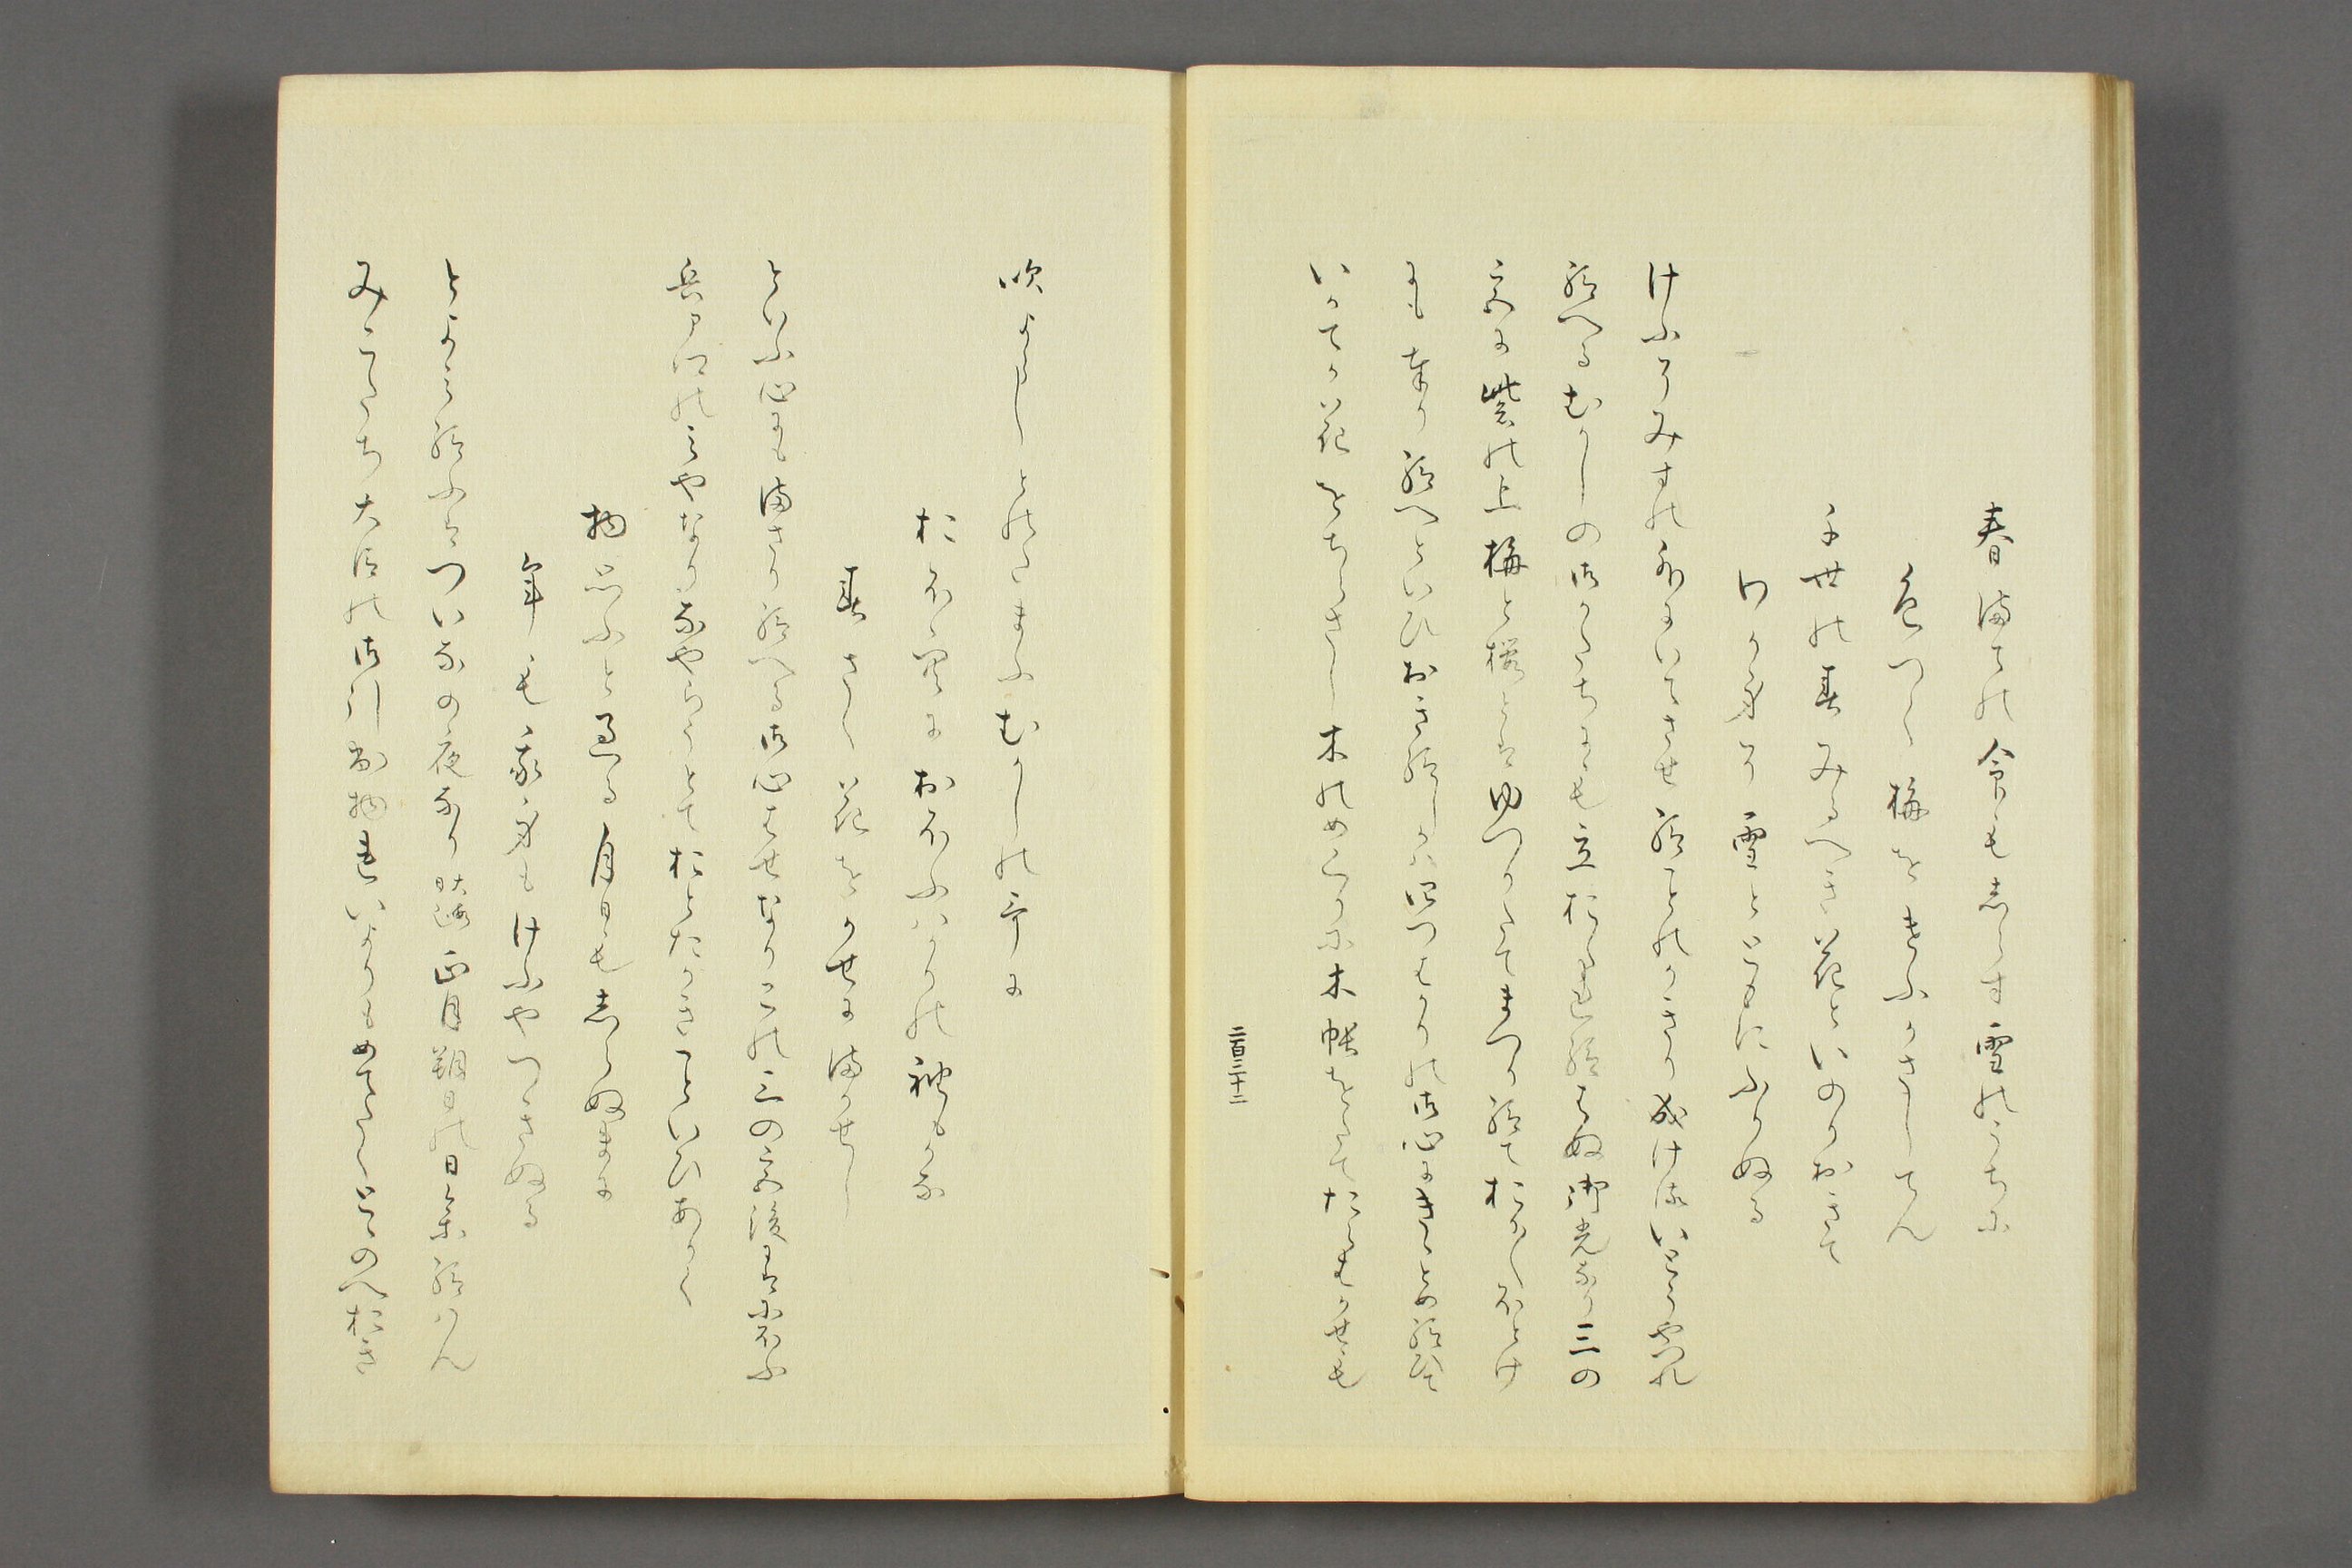 春まての命も志らす雪のうちに
色つく梅をけふかさしてん
千世の春みるへき花といのりおきて
わか身そ雪とともにふりぬる
けふそみすの外にいてさせ給ことのかきり成けれはいとうやつれ
給へるむかしの御かたちにも立おくれ給はぬ御光なり三の
宮は紫の上梅と桜とはゆつりたてまつり給ておりくほとけ
にも奉り給へといひおき給しかは四つはかりの御心にきゝとめ給ひて
いかてか花をちらさし木のめくりに木帳をたてたらむかせも
二百三十二
吹よらしとのたまふむかしの哥に
おほ空におほふはかりの袖もかな
春さく花をかせにまかせし
といふ心にもまさり給へる御心はせなりこの三の宮後は匂ふ
兵ア卿のみやなりなやらうとておとたかきことといひありく
物思ふと過る月日も志らぬまに
年も我身もけふやつきぬる
とよみ給ふはついなの夜なり晦正月朔日の日集給はん
みこたち大臣の御引出物共いよりもめてたくとゝのへおき